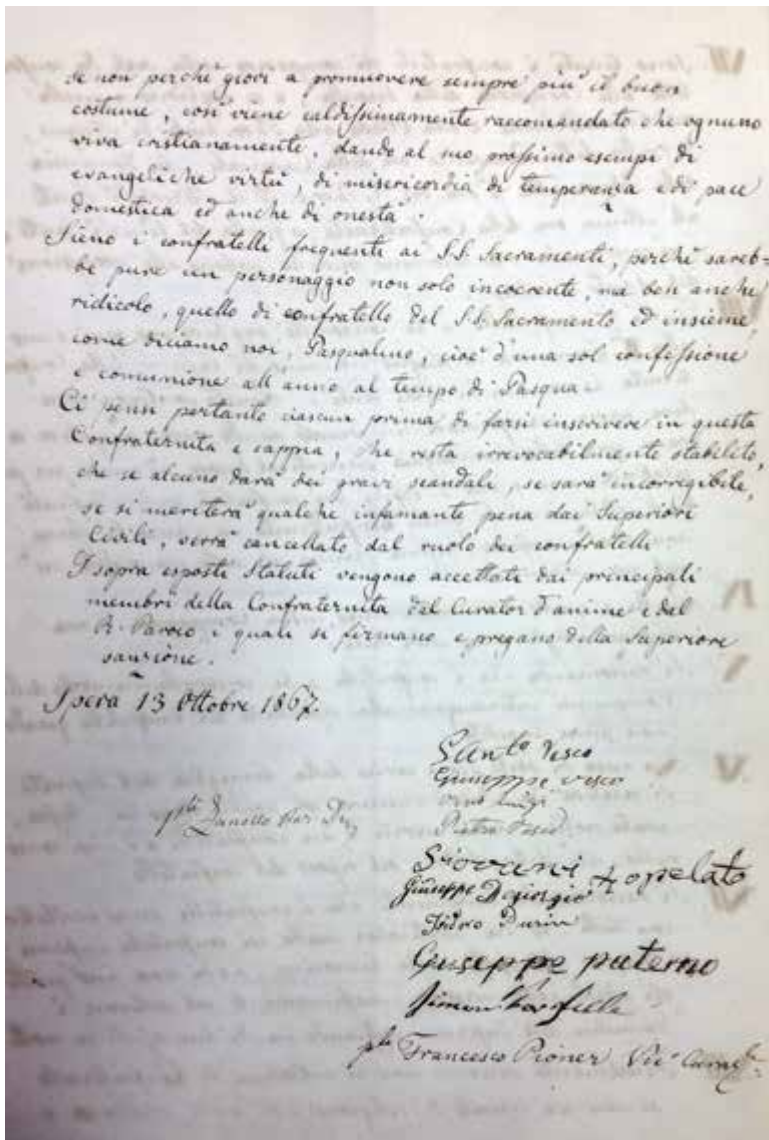 se non perche giovi a promuovere sempre più il buon
costume, così viene caldissimamente raccomandato che ognuno
viva cristianamente, dando al suo prossimo esempi di
evangeliche virtù, di misericordia di temperanza e di pace
domestica ed anche di onestà.
Sieno i confratelli frequenti ai S.S. Sacramenti, perchè sareb=
be pure un personaggio non solo incoerente, ma ben anche
ridicolo, quello di confratello del S.S. Sacramento ed insieme,
come diciamo noi, Pasqualino, cioè d'una sol confessione
e comunione all'anno al tempo di Pasqua.
Ci pensi pertanto ciascun prima di farsi inscrivere in questa
Confraternita e sappia, che resta irrevocabilmente stabilito,
che se alcuno darà dei gravi scandali, se sarà incorregibile,
se si meriterà qualche infamante pena dai Superiori
Civili, verrà cancellato dal ruolo dei confratelli
I sopra esposti Statuti vengono accettati dai principali
membri della Confraternita del Curator d'anime e del
R. Paroco i quali si firmano e pregano della Superiore
sanzione.
Spera 13 Ottobre 1867.
Santo Vesco
Giuseppe vesco
Luigi
Pietro
Giovani Ropelato
Giuseppe Degiorgio
Isidoro Purin
Guseppe paterno
Simon
Francesco Pioner